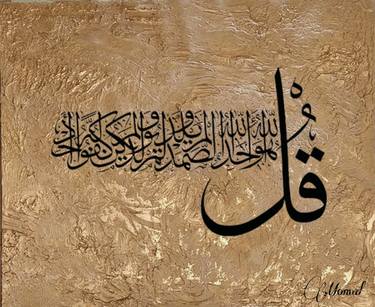 قُل هو الله احد الله الصمد لم يلد ولم يولد ولم يكن له كفوا احد